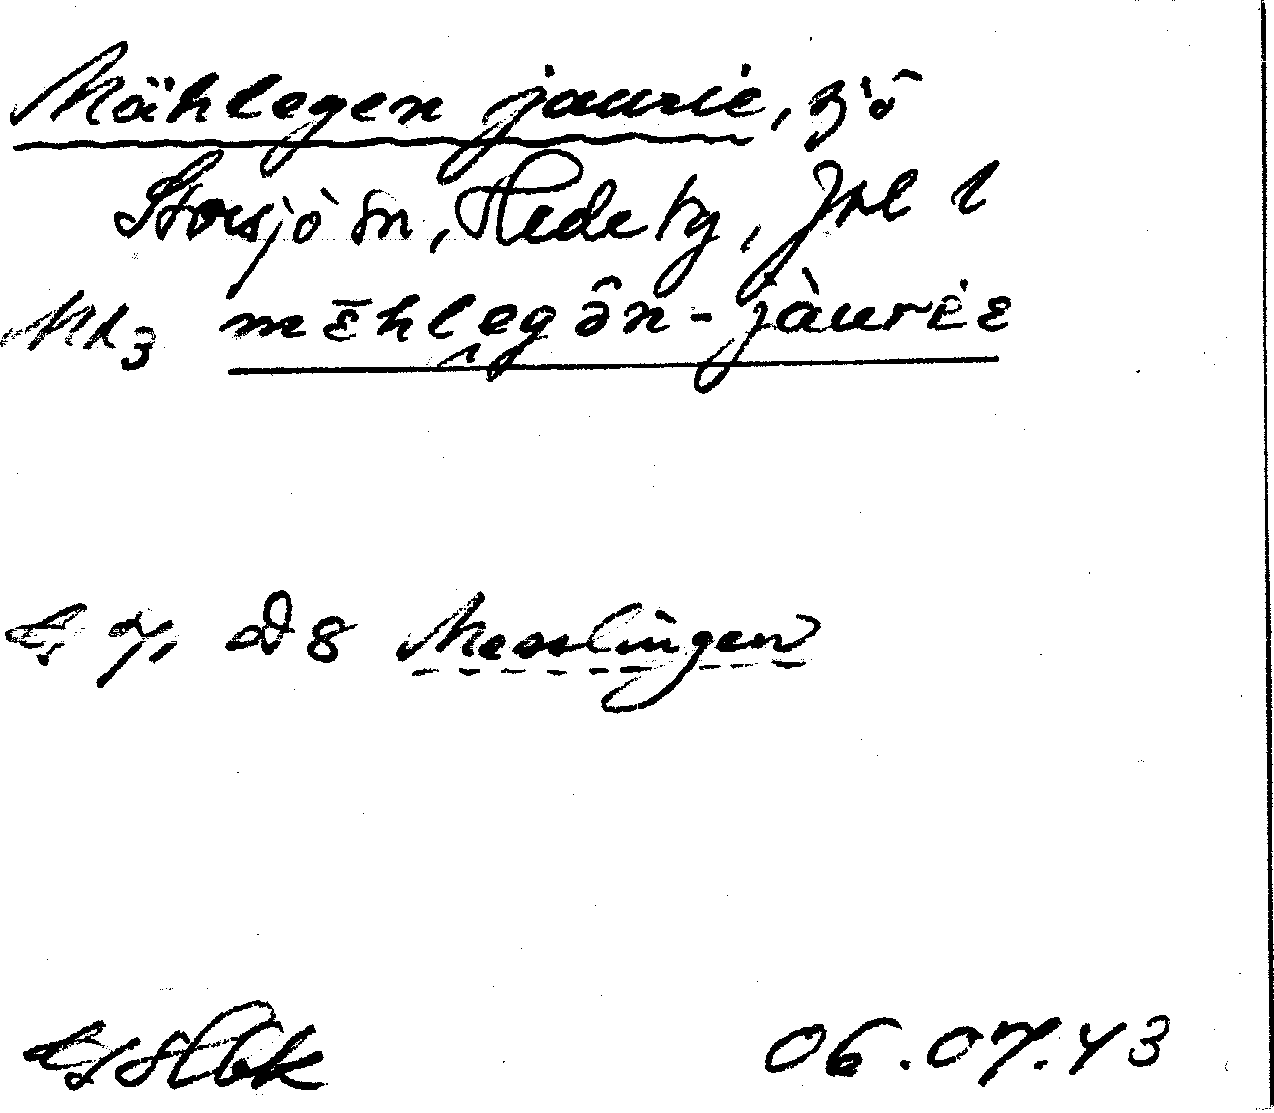 Mählegen jaurie, sjö
Storsjö sn, Hede tg, Jml l
mēhlegôn-jàuriɛ
D8 Messlingen
06.07.43